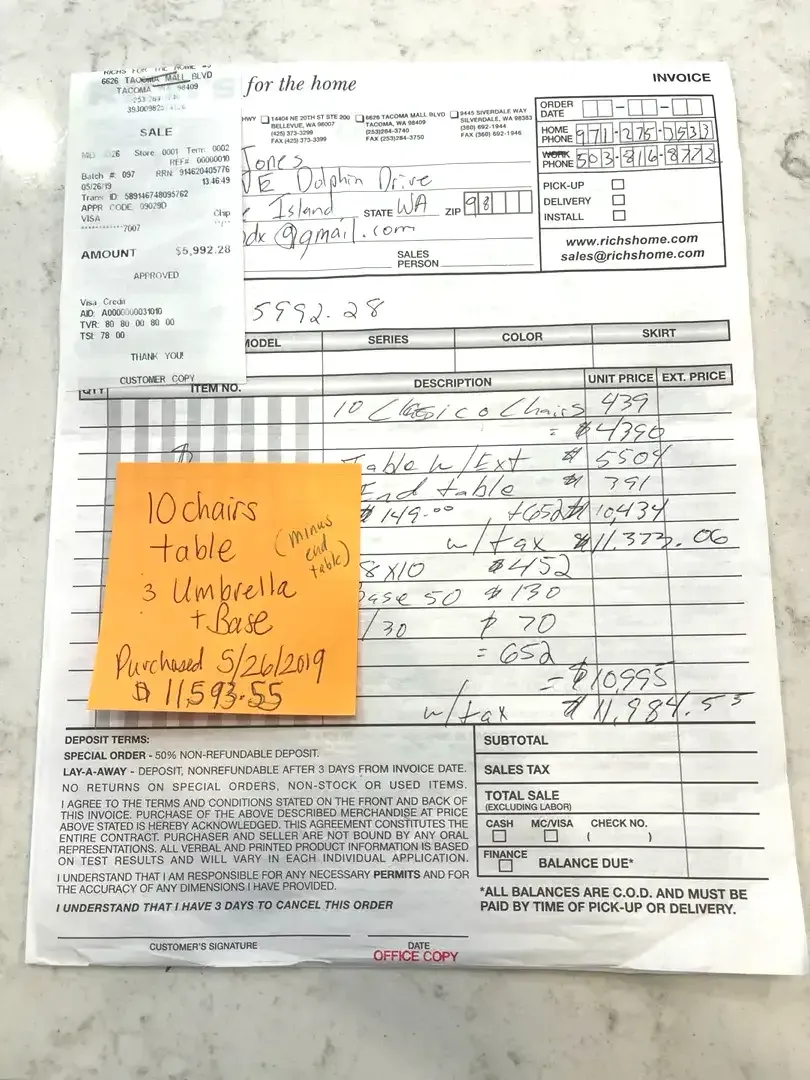 6626 TACOMA MALL BLVD
TACOMA 98409
SALE
Store: 0001 Term: 0002
REF#: 00000010
Batch #: 097 RRN: 914620405776
05/26/19 13:46:49
Trans ID: 589146748095762
APPR CODE: 09029D
VISA Chip
************7007
AMOUNT $5,992.28
APPROVED
Visa Credit
AID: A0000000031010
TVR: 80 80 00 80 00
TSI: 78 00
THANK YOU!
CUSTOMER COPY
for the home
INVOICE
HWY
14404 NE 20TH ST STE 200
BELLEVUE, WA 98007
(425) 373-3299
FAX (425) 373-3399
6626 TACOMA MALL BLVD
TACOMA, WA 98409
(253)284-3740
FAX (253)284-3750
9445 SILVERDALE WAY
SILVERDALE, WA 98383
(360) 692-1944
FAX (360) 692-1946
ORDER DATE
HOME PHONE 971-275-7533
WORK PHONE 503-816-8772
PICK-UP
DELIVERY
INSTALL
www.richshome.com
sales@richshome.com
Jones
E Dolphin Drive
Island STATE WA ZIP 98
dx@gmail.com
SALES PERSON
5992.28
MODEL SERIES COLOR SKIRT
QTY ITEM NO. DESCRIPTION UNIT PRICE EXT. PRICE
10 Classico Chairs 439
= $4390
Table w/Ext $ 5504
End table $ 391
$149.00 +652 $10,434
w/tax $11,373.06
8x10 $452
Base 50 $130
/30 $ 70
= 652
= $10,995
w/tax $11,984.55
10 chairs
table (minus end table)
3 Umbrella
+ Base
Purchased 5/26/2019
$11,593.55
DEPOSIT TERMS:
SPECIAL ORDER - 50% NON-REFUNDABLE DEPOSIT.
LAY-A-AWAY - DEPOSIT, NONREFUNDABLE AFTER 3 DAYS FROM INVOICE DATE.
NO RETURNS ON SPECIAL ORDERS, NON-STOCK OR USED ITEMS.
I AGREE TO THE TERMS AND CONDITIONS STATED ON THE FRONT AND BACK OF
THIS INVOICE. PURCHASE OF THE ABOVE DESCRIBED MERCHANDISE AT PRICE
ABOVE STATED IS HEREBY ACKNOWLEDGED. THIS AGREEMENT CONSTITUTES THE
ENTIRE CONTRACT. PURCHASER AND SELLER ARE NOT BOUND BY ANY ORAL
REPRESENTATIONS. ALL VERBAL AND PRINTED PRODUCT INFORMATION IS BASED
ON TEST RESULTS AND WILL VARY IN EACH INDIVIDUAL APPLICATION.
I UNDERSTAND THAT I AM RESPONSIBLE FOR ANY NECESSARY PERMITS AND FOR
THE ACCURACY OF ANY DIMENSIONS I HAVE PROVIDED.
I UNDERSTAND THAT I HAVE 3 DAYS TO CANCEL THIS ORDER
CUSTOMER'S SIGNATURE DATE
OFFICE COPY
SUBTOTAL
SALES TAX
TOTAL SALE
(EXCLUDING LABOR)
CASH MC/VISA CHECK NO.
( )
FINANCE BALANCE DUE*
*ALL BALANCES ARE C.O.D. AND MUST BE
PAID BY TIME OF PICK-UP OR DELIVERY.